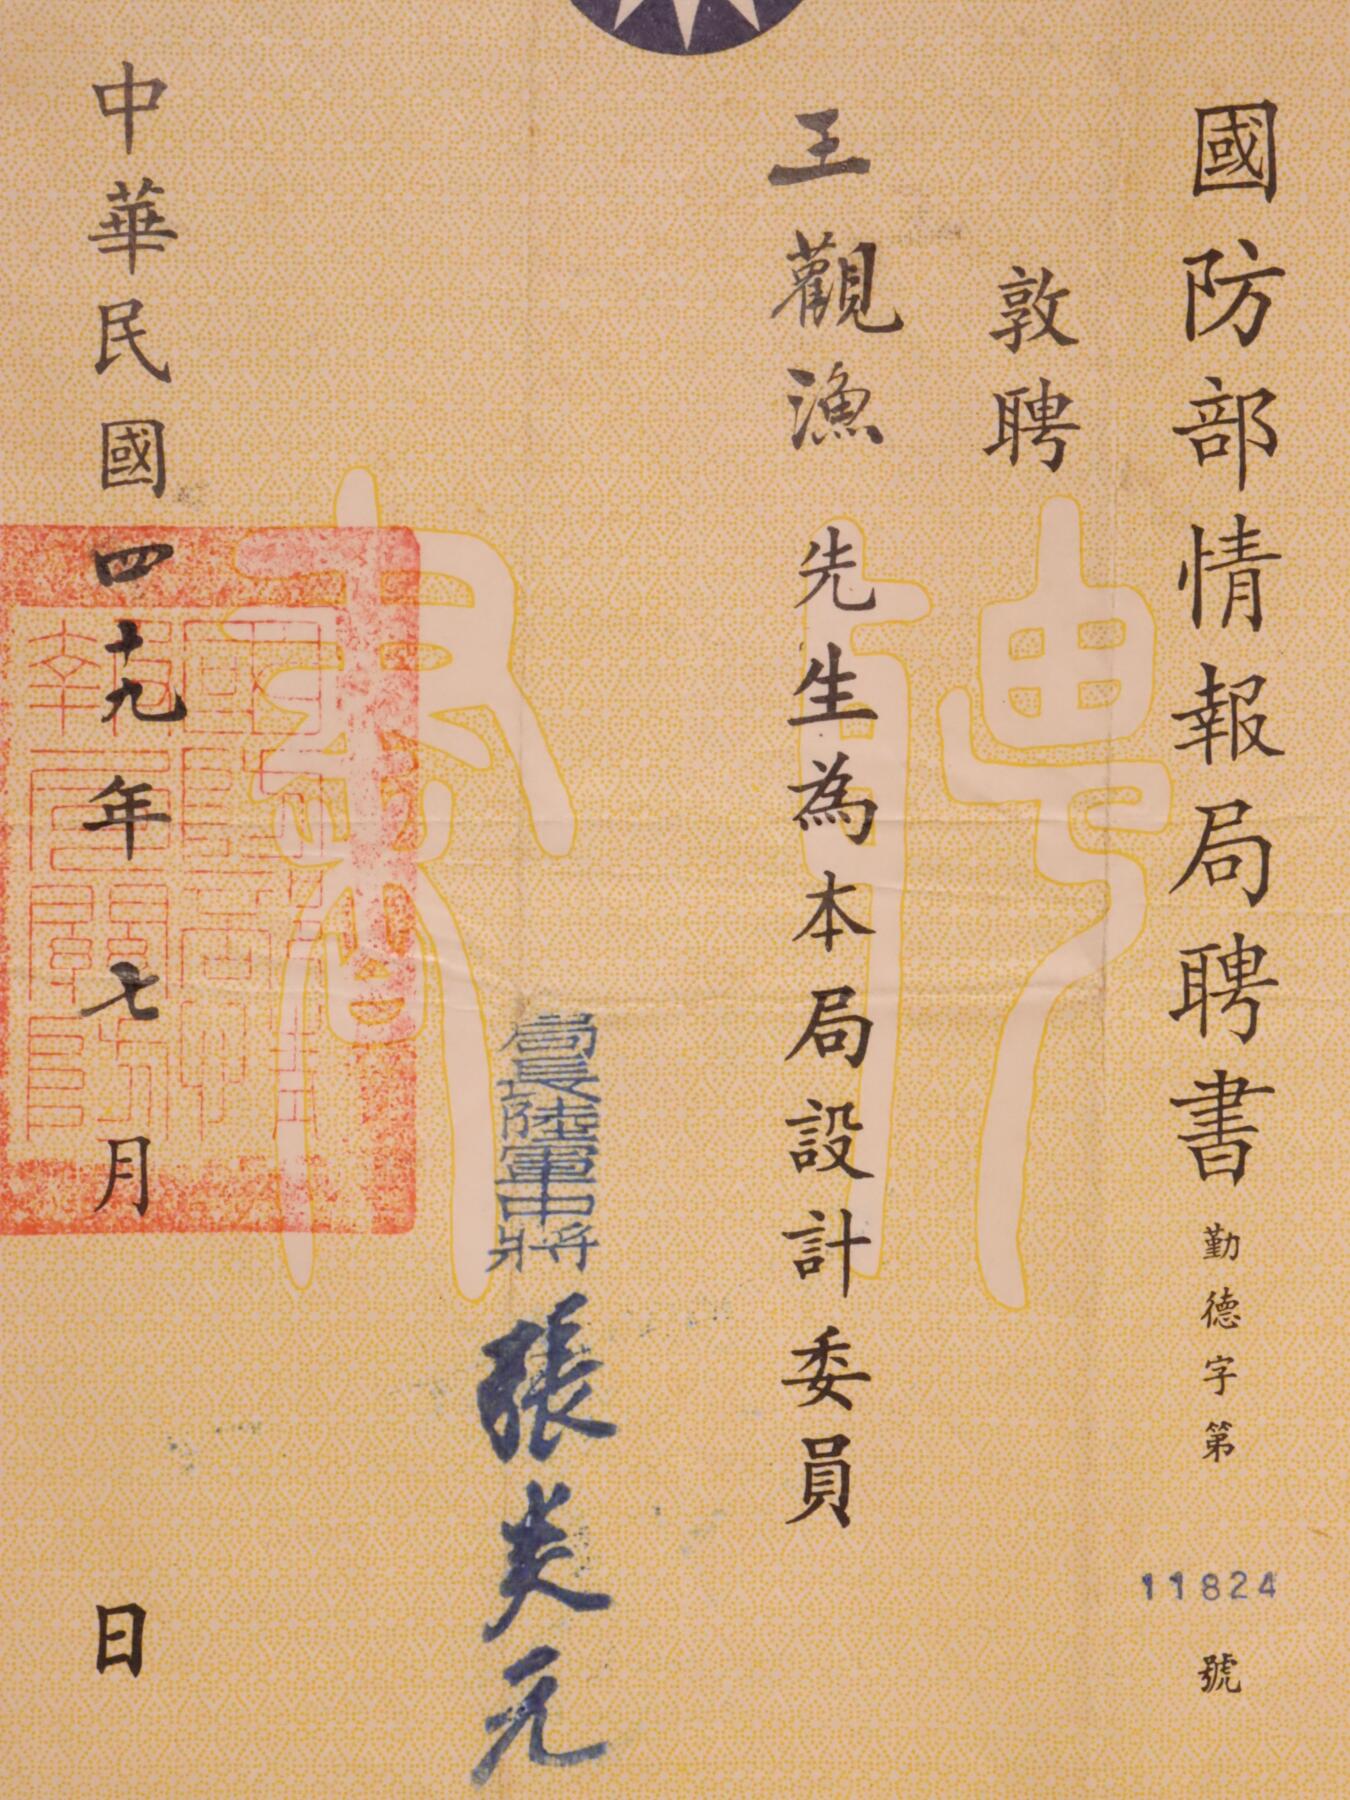 國防部情報局聘書 勤德字第11824號
敦聘
王觀漁先生為本局設計委員
局長陸軍中將張炎元
中華民國四十九年七月 日
聘書